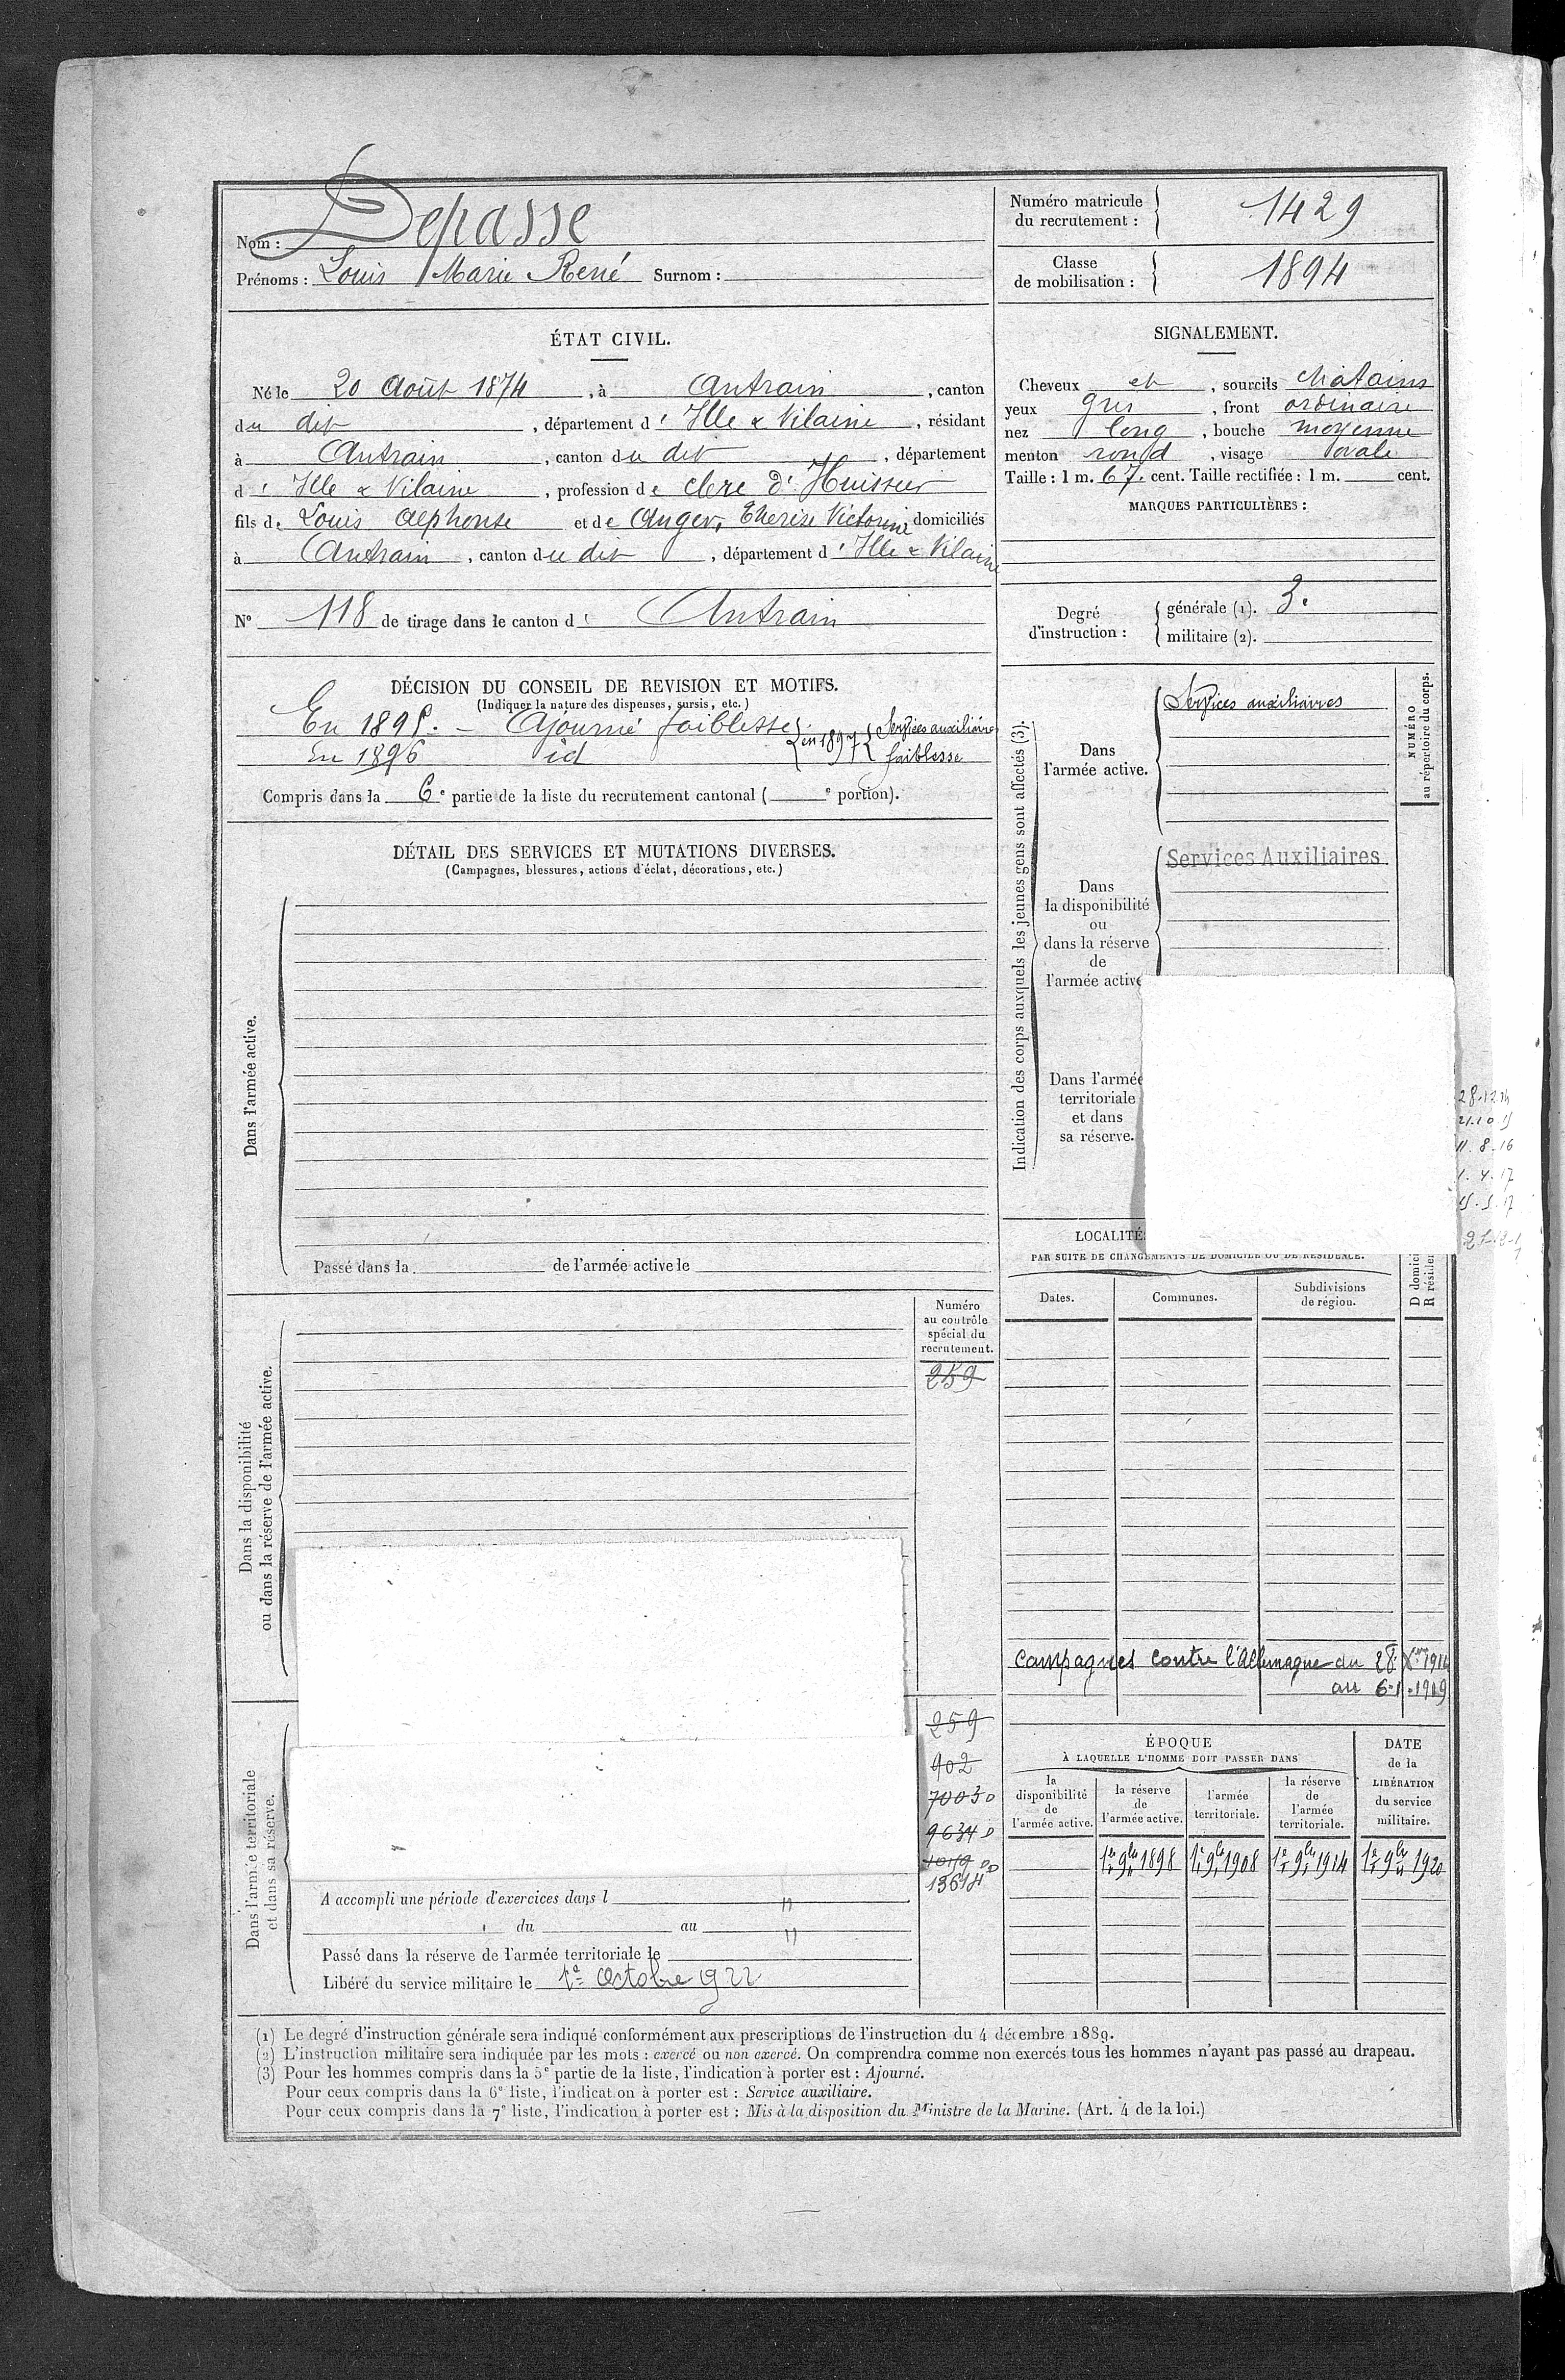 Nom : Depasse
Prénoms : Louis Marie René Surnom :
Numéro matricule du recrutement : 1429
Classe de mobilisation : 1894
ÉTAT CIVIL.
Né le 20 Août 1874, à Antrain, canton
du dit, département d' Ille & Vilaine, résidant
à Antrain, canton du dit, département
d' Ille & Vilaine, profession de clerc d'Huissier
fils de Louis Alphonse et de Anger, Thérèse Victorine domiciliés
à Antrain, canton du dit, département d' Ille & Vilaine
N° 118 de tirage dans le canton d' Antrain
SIGNALEMENT.
Cheveux et, sourcils chatains
yeux gris, front ordinaire
nez long, bouche moyenne
menton rond, visage ovale
Taille : 1 m. 67. cent. Taille rectifiée : 1 m. cent.
MARQUES PARTICULIÈRES :
Degré d'instruction :
générale (1). 3.
militaire (2).
DÉCISION DU CONSEIL DE REVISION ET MOTIFS.
(Indiquer la nature des dispenses, sursis, etc.)
En 1895. - Ajourné faiblesse
En 1896 id
en 1897 Services auxiliaires
faiblesse
Compris dans la 6e partie de la liste du recrutement cantonal ( e portion).
DÉTAIL DES SERVICES ET MUTATIONS DIVERSES.
(Campagnes, blessures, actions d'éclat, décorations, etc.)
Dans l'armée active.
Passé dans la de l'armée active le
Indication des corps auxquels les jeunes gens sont affectés (3).
Dans l'armée active.
Services auxiliaires
NUMÉRO au répertoire du corps.
Dans la disponibilité ou dans la réserve de l'armée active
Services Auxiliaires
Dans l'armée territoriale et dans sa réserve.
28.12.14
21.10 15
11.8.16
1.4.17
15.5.17
LOCALITÉ
PAR SUITE DE CHANGEMENTS DE DOMICILE OU DE RÉSIDENCE.
Dates.
Communes.
Subdivisions de région.
D domici
R résiden
Dans la disponibilité
ou dans la réserve de l'armée active.
Numéro au contrôle spécial du recrutement.
259
Campagnes contre l'Allemagne du 28 Xbre 1914
au 6-1-1919
Dans l'armée territoriale
et dans sa réserve.
259
902
70030
A accompli une période d'exercices dans l "
du au "
Passé dans la réserve de l'armée territoriale le
Libéré du service militaire le 1er Octobre 1922
ÉPOQUE
À LAQUELLE L'HOMME DOIT PASSER DANS
la disponibilité de l'armée active.
la réserve de l'armée active.
l'armée territoriale.
la réserve de l'armée territoriale.
DATE de la LIBÉRATION du service militaire.
1er 9bre 1898
1er 9bre 1908
1er 9bre 1914
1er 9bre 1920
(1) Le degré d'instruction générale sera indiqué conformément aux prescriptions de l'instruction du 4 décembre 1889.
(2) L'instruction militaire sera indiquée par les mots : exercé ou non exercé. On comprendra comme non exercés tous les hommes n'ayant pas passé au drapeau.
(3) Pour les hommes compris dans la 5e partie de la liste, l'indication à porter est : Ajourné.
Pour ceux compris dans la 6e liste, l'indication à porter est : Service auxiliaire.
Pour ceux compris dans la 7e liste, l'indication à porter est : Mis à la disposition du Ministre de la Marine. (Art. 4 de la loi.)